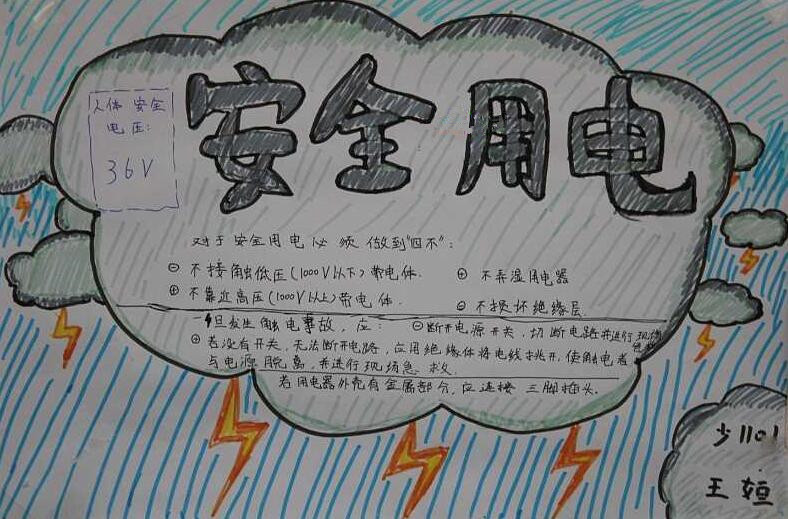 安全用电
人体 安全
电压:
36V
对于安全用电必须做到"四不":
⊖ 不接触低压(1000V以下)带电体.
⊕ 不弄湿用电器
⊕ 不靠近高压(1000V以上)带电体.
⊖ 不损坏绝缘层.
一旦发生触电事故, 应: ⊖断开电源开关, 切断电路并进行现场急救
⊕若没有开关, 无法断开电路, 应用绝缘体将电线挑开, 使触电者
与电源脱离, 并进行现场急救.
若用电器外壳有金属部分, 应连接 三脚插头.
少1101
王姮